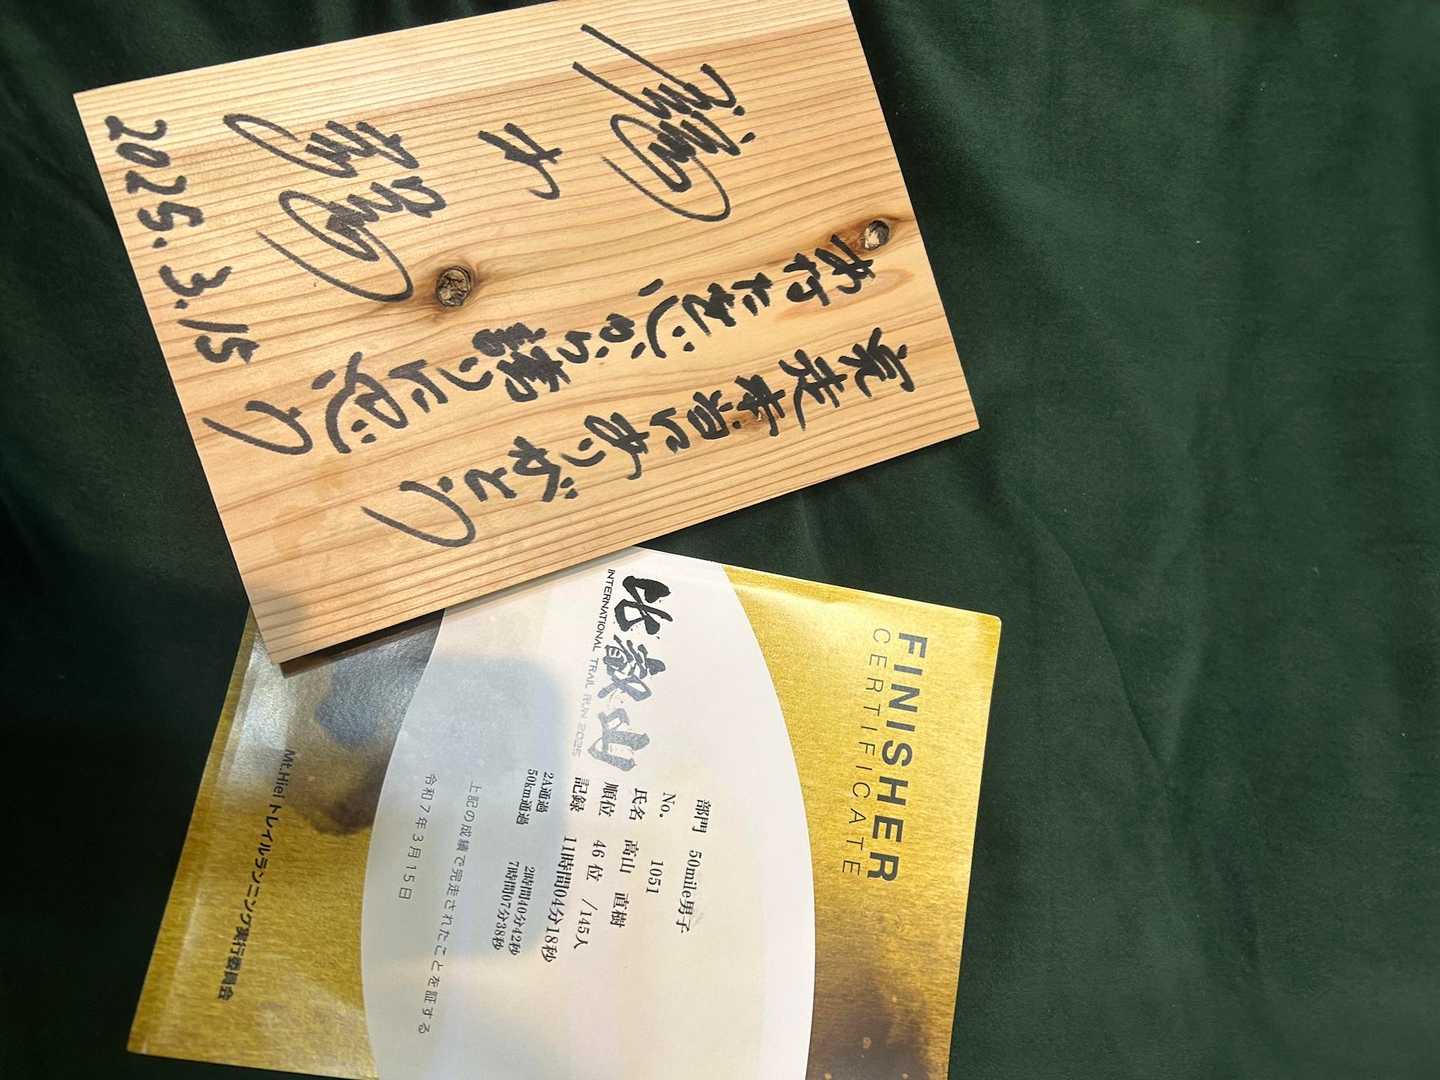 完走本当にありがとう
あなたを心から誇りに思う
鏑木毅
2025.3.15
FINISHER
CERTIFICATE
比叡山
INTERNATIONAL TRAIL RUN 2025
部門 50mile男子
No. 1051
氏名 高山 直樹
順位 46 位 /145人
記録 11時間04分18秒
2A通過 2時間40分42秒
50km通過 7時間07分38秒
上記の成績で完走されたことを証する
令和7年3月15日
Mt.Hiei トレイルランニング実行委員会